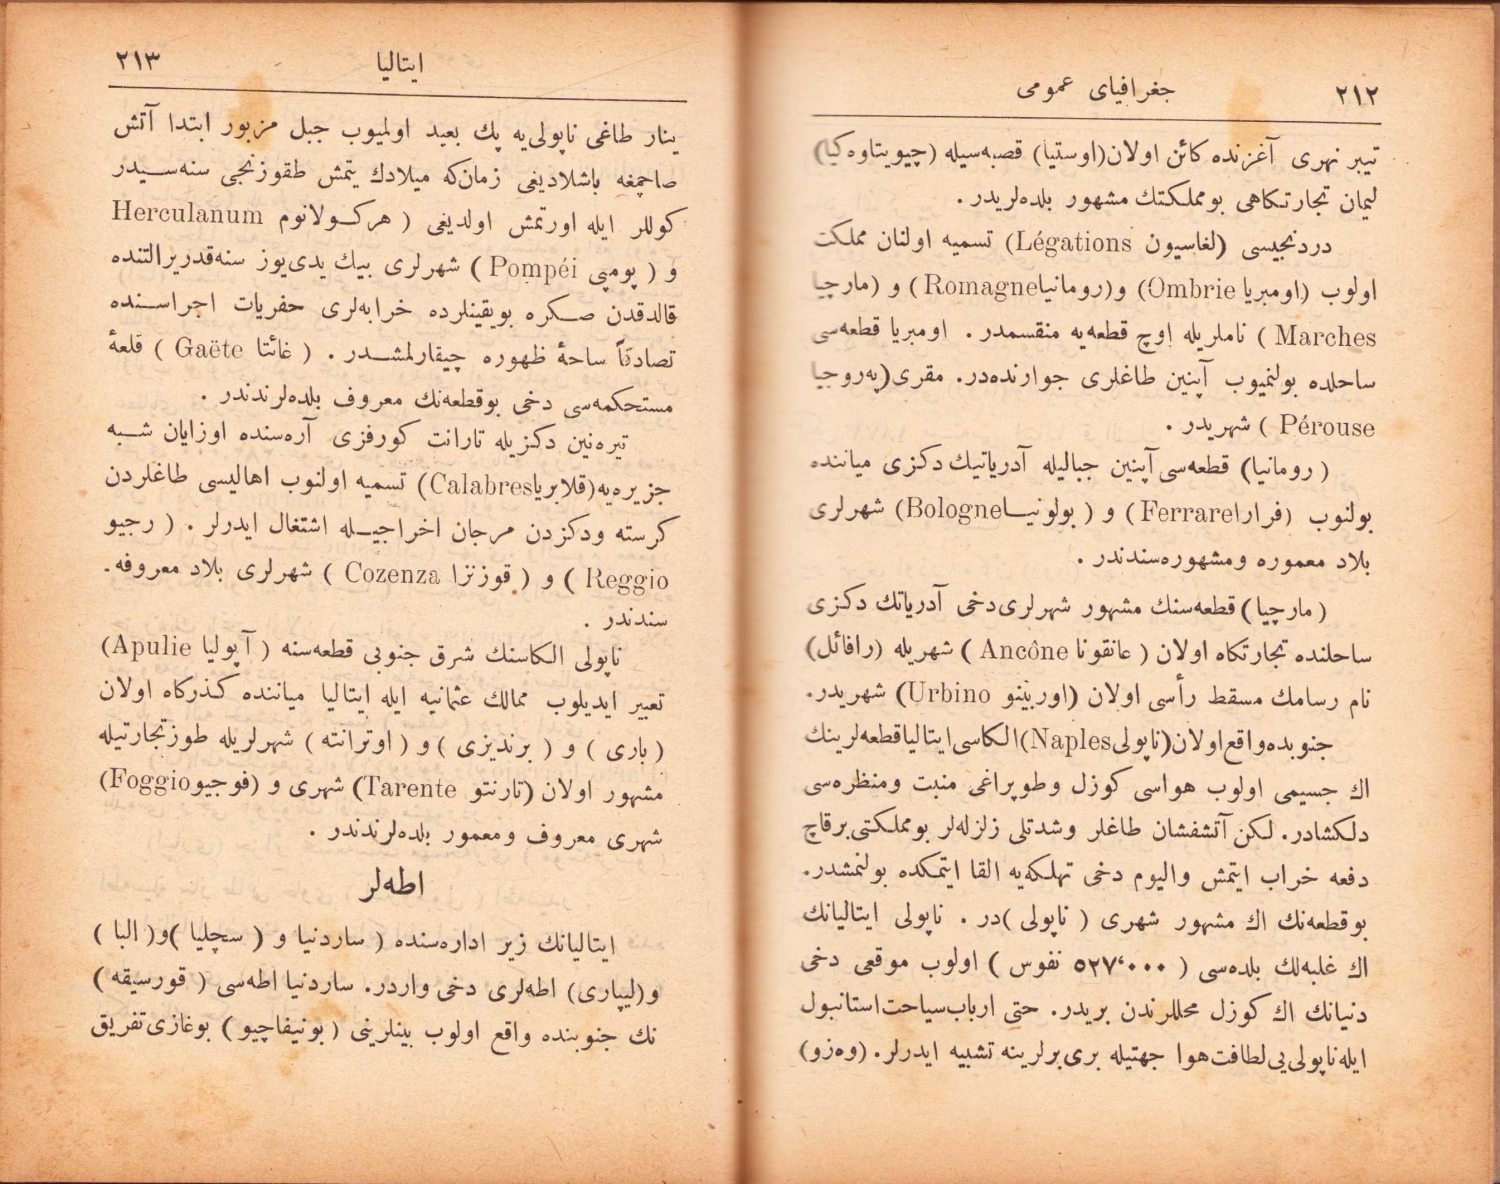 ٢١٢
جغرافیای عمومی
تیبر نهری آغزنده کائن اولان (اوستیا) قصبه‌سیله (چیویتاوه‌کیا)
لیمان تجارتکاهی بومملکتك مشهور بلده‌لریدر .
دردنجیسی (لغاسیون Légations) تسمیه اولنان مملکت
اولوب (اومبریا Ombrie) و(رومانیا Romagne) و (مارچیا
Marches ) ناملریله اوچ قطعه‌یه منقسمدر . اومبریا قطعه‌سی
ساحلده بولنمیوب آپنین طاغلری جوارنده‌در. مقری (په‌روجیا
Pérouse ) شهریدر .
( رومانیا) قطعه‌سی آپنین جبالیله آدریاتیك دکزی میاننده
بولنوب (فرارا Ferrare) و ( بولونیـا Bologne) شهرلری
بلاد معموره ومشهوره‌سندندر .
( مارچیا) قطعه‌سنك مشهور شهرلری‌دخی آدریاتك دکزی
ساحلنده تجارتکاه اولان ( عانقونا Ancône ) شهریله (رافائل)
نام رسامك مسقط رأسی اولان (اوربینو Urbino) شهریدر.
جنوبده‌واقع‌اولان(ناپولی Naples)الکاسی‌ایتالیاقطعه‌لرینك
اك جسیمی اولوب هواسی کوزل وطوپراغی منبت ومنظره‌سی
دلکشادر. لکن آتشفشان طاغلر وشدتلی زلزله‌لر بومملکتی‌برقاچ
دفعه خراب ایتمش والیوم دخی تهلکه‌یه القا ایتمکده بولنمشدر.
بوقطعه‌نك اك مشهور شهری ( ناپولی )در . ناپولی ایتالیانك
اك غلبه‌لك بلده‌سی ( ٥٢٧٬٠٠٠ نفوس ) اولوب موقعی دخی
دنیانك اك کوزل محللرندن بریدر. حتی ارباب‌سیاحت‌استانبول
ایله‌ناپولی‌یی‌لطافت‌هوا جهتیله بری‌برلرینه تشبیه ایدرلر. (وه‌زو)
ایتالیا
٢١٣
ینار طاغی ناپولی‌یه پك بعید اولمیوب جبل مزبور ابتدا آتش
صاچمغه باشلادیغی زمان‌که میلادك یتمش طقوزنجی سنه‌سـیدر
کوللر ایله اورتمش اولدیغی ( هرکـولانوم Herculanum
و ( پومپی Pompéi ) شهرلری بیك یدی‌یوز سنه‌قدریرالتنده
قالدقدن صـکره بویقینلرده خرابه‌لری حفریات اجراسـنده
تصادفاً ساحۀ ظهوره چیقارلمشـدر . ( غائتا Gaëte ) قلعۀ
مستحکمه‌سی دخی بوقطعه‌نك معروف بلده‌لرندندر .
تیره‌نین دکزیله تارانت کورفزی آره‌سنده اوزایان شـبه
جزیره‌یه(قلابریا Calabres) تسمیه اولنوب اهالیسی طاغلردن
کرسته ودکزدن مرجان اخراجیـله اشتغال ایدرلر . ( رجیو
Reggio ) و ( قوزنزا Cozenza ) شهرلری بلاد معروفه.
سندندر .
ناپولی الکاسنك شرق جنوبی قطعه‌سنه ( آپولیا Apulie)
تعبیر ایدیلوب ممالك عثمانیه ایله ایتالیا میاننده کـذرکاه اولان
( باری ) و ( برندیزی ) و ( اوترانته ) شهرلریله طوزتجارتیله
مشهور اولان (تارنتو Tarente) شهری و (فوجیو Foggio)
شهری معروف ومعمور بلده‌لرندندر .
اطه‌لر
ایتالیانك زیر اداره‌سنده ( ساردنیا و ( سچلیا )و( البا )
و(لیپاری) اطه‌لری دخی واردر. ساردنیا اطه‌سی ( قورسیقه )
نك جنوبنده واقع اولوب بینلرینی ( بونیفاچیو ) بوغازی‌تفریق